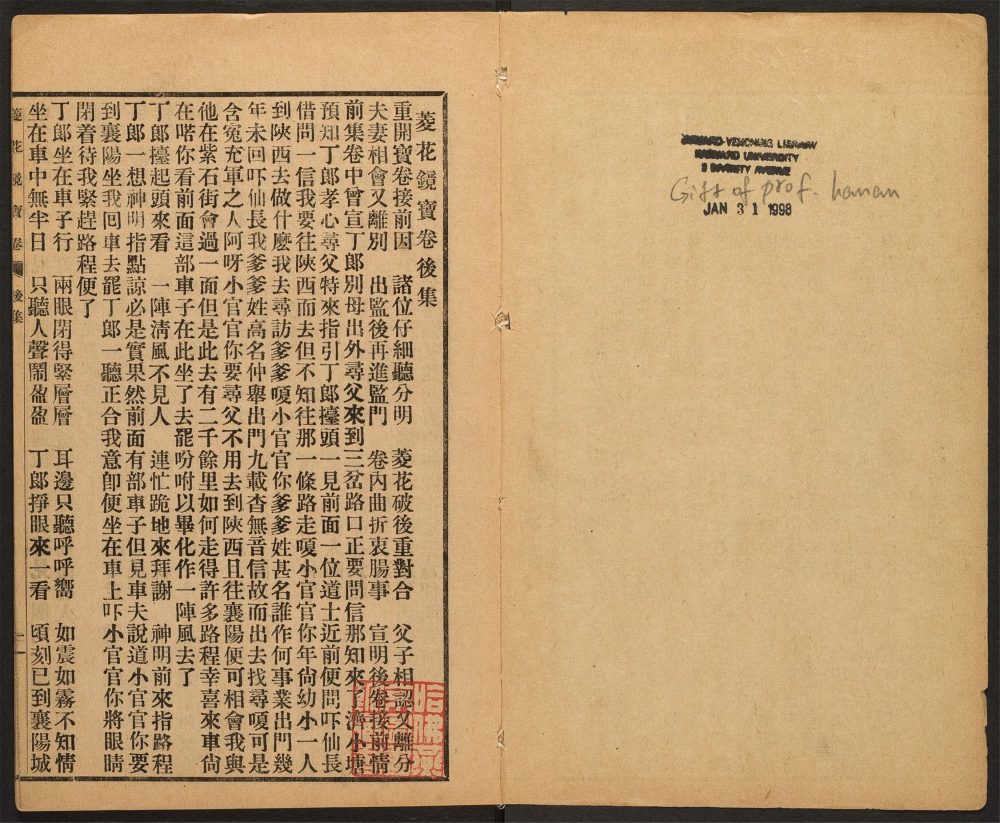 菱花鏡寶卷後集
重開寶卷接前因　諸位仔細聽分明　菱花破後重對合　父子相認又離分
夫妻相會又離別　出監後再進監門　卷內曲折衷腸事　宣明後卷接前情
前集卷中曾宣丁郎別母出外尋父來到三岔路口正要問信那知來了濟小塘
預知丁郎孝心尋父特來指引丁郎擡頭一見前面一位道士近前便問吓仙長
借問一信我要往陝西而去但不知往那一條路走嗄小官官你年尙幼小一人
到陝西去做什麼我去尋訪爹爹嗄小官官你爹爹姓甚名誰作何事業出門幾
年未回吓仙長我爹爹姓高名仲舉出門九載杳無音信故而出去找尋嗄可是
含冤充軍之人阿呀小官官你要尋父不用去到陝西且往襄陽便可相會我與
他在紫石街會過一面但是此去有二千餘里如何走得許多路程幸喜來車尙
在喏你看前面這部車子在此坐了去罷吩咐以畢化作一陣風去了
丁郎擡起頭來看　一陣淸風不見人　連忙跪地來拜謝　神明前來指路程
丁郎一想神明指點諒必是實果然前面有部車子但見車夫說道小官官你要
到襄陽坐我囘車去罷丁郎一聽正合我意卽便坐在車上吓小官官你將眼睛
閉着待我緊趕路程便了
丁郎坐在車子行　兩眼閉得緊層層　耳邊只聽呼呼嚮　如震如霧不知情
坐在車中無半日　只聽人聲鬧盈盈　丁郎掙眼來一看　頃刻已到襄陽城
菱花鏡寶卷　後集　一
HARVARD-YENCHING LIBRARY
HARVARD UNIVERSITY
2 DIVINITY AVENUE
Gift of prof. Hanan
JAN 31 1998